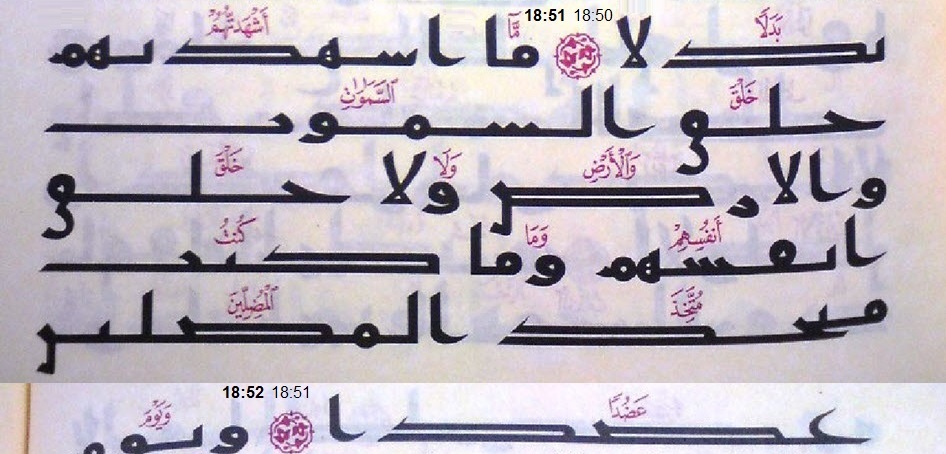 18:51 18:50
بَدَلًا مَّآ أَشْهَدتُّهُمْ
بدلا ما اشهدتهم
خَلْقَ ٱلسَّمَٰوَٰتِ
خلق السموت
وَٱلْأَرْضِ وَلَا خَلْقَ
والارض ولا خلق
أَنفُسِهِمْ وَمَا كُنتُ
انفسهم وما كنت
مُتَّخِذَ ٱلْمُضِلِّينَ
متخذ المضلين
18:52 18:51
عَضُدًا وَيَوْمَ
عضدا ويوم